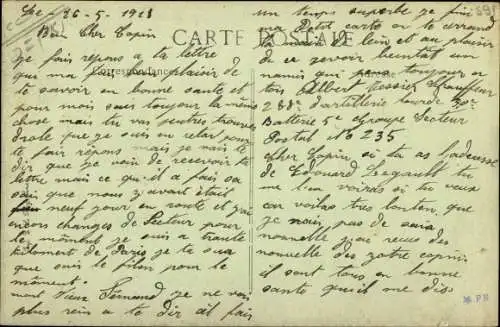 Le 26-5-1918
Bien Cher Copin
CARTE POSTALE
Correspondance
je fair répons a ta lettre
qui ma plaisir de
te savoir en bonne sante et
pour mois sais toujour la même
chose mais tu vas peutres trouver
drole que je suis en retar pour
te fair répons mais je vais te
dir que je vien de recevoir te
lettre mais ce qu'il a fais sa
sais que nous y avait étail
neuf jour en route et j'ai
encors changes de Secteur pour
le môment je suis a trante
kiloment de Paris je te sua
que sais le filon pour le
môment.
mont Vieux Fernand je ne vois
plus rien a te dir il fair
un temps superbe je fini
Petit carte on te serrand
ta main de loin et au plaisir
de ce revoir bientut un
namis qui pense toujour a
tois Albert Tessier Chauffeur
288e d'artillerie lourde 20e
Batterie 5e Groupe Secteur
Postal N° 235
Cher Copin si tu as l'adresse
de Edouard Legault tu
me l'en voiras si tu veux
car voilas tres lonten que
je nais pas de saie
nouvelle j'ai recus des
nouvelle des notre copin
il sont tous en bonne
sante qu'il me dis
M.P.N